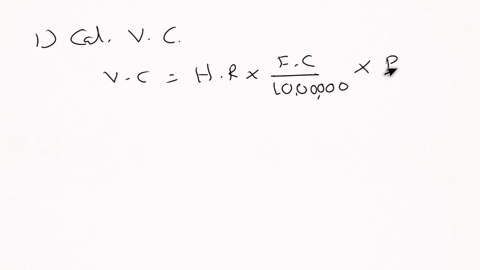 1) Cal. V. C.
V.C = H.R x F.C / 10,00,000 x P